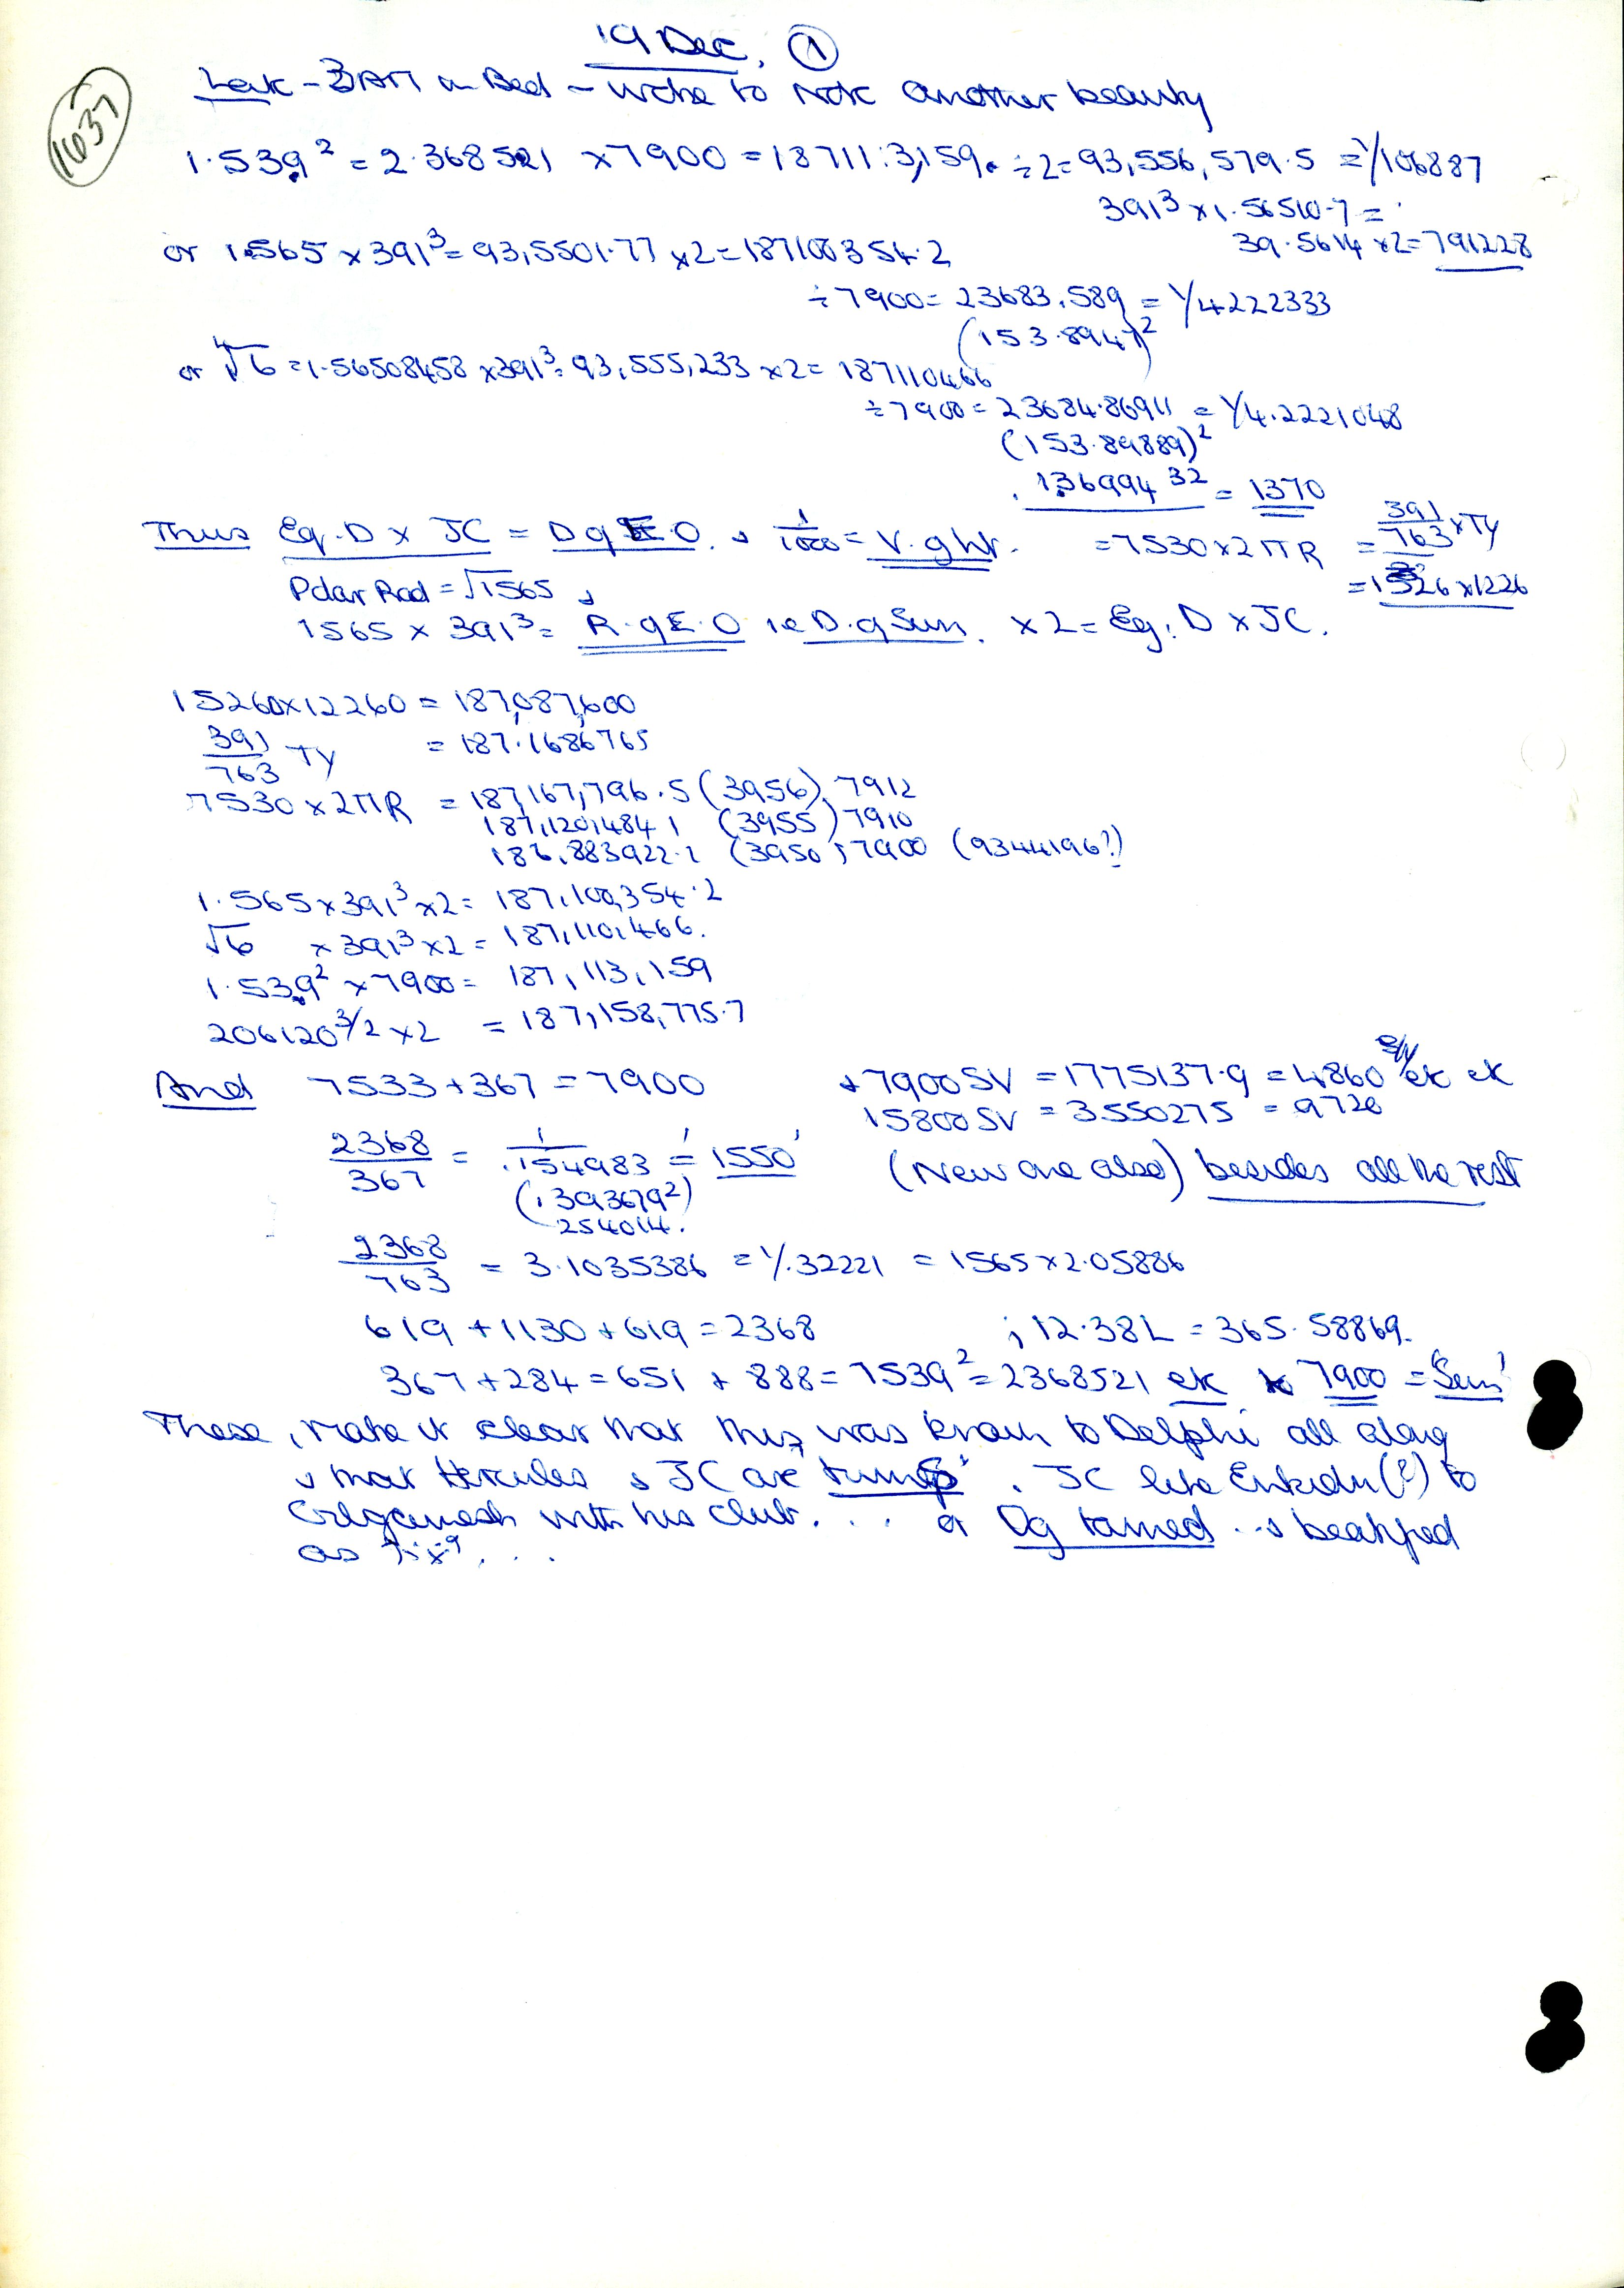 19 Dec. ①
1637
Leak - 3AM in Bed - woke to note another beauty
1.539² = 2.368521 × 7900 = 18711:3,159. ÷2 = 93,556,579.5 = 1/106887
391³ × 1.56510-7 =
39.5614 ×2 = 791228
or 1.565 × 391³ = 93,5501.77 ×2 = 187100354.2
÷7900 = 23683.589 = 1/4222333
(153.8947)²
or ∜6 = 1.56508458 × 391³ = 93,555,233 ×2 = 187110466
÷7900 = 23684.86911 = 1/4.2221048
(153.89889)²
.13699432 = 1370
Thus Eq.D × JC = D of E.O. & 1/1000 = V. g hr. = 7530 × 2πR = 391/763 × TY
= 1526 × 1226
Polar Rad = √1565 &
1565 × 391³ = R. of E.O ie D. of Sun. ×2 = Eq. D × JC.
15260×12260 = 187,087,600
391/763 TY = 187.1686765
7530 × 2πR = 187,167,796.5 (3956), 7912
187,120,484.1 (3955) 7910
186,883922.2 (3950, 7900 (9344196?)
1.565×391³×2 = 187,100,354.2
√6 ×391³×2 = 187,110,466.
1.539² ×7900 = 187,113,159
206120^3/2 ×2 = 187,158,775.7
And 7533 + 367 = 7900 & 7900 SV = 1775137.9 = 4860 ek ek
15800 SV = 3.550275 = 9720
2368/367 = 1/.154983 = '1550' (New one also) besides all the rest
(.393679²)
254014.
2368/763 = 3.1035386 = 1/.32221 = 1565 × 2.05886
619 + 1130 + 619 = 2368 ; 12.38L = 365.58869.
367 + 284 = 651 + 888 = 1539² = 2368521 ek × 7900 = 'Sun'
These, make it clear that this was known to Delphi all along
& that Hercules & JC are 'tum . JC like Enkidu(?) to
Gilgamesh with his club. . . . or Og tamed . . & beatified
as . . .